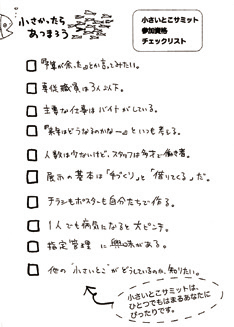 小さかったら
あつまろう
小さいとこサミット
参加資格
チェックリスト
□ 「予算が余った」とか言ってみたい。
□ 専従職員は3人以下。
□ 主要な仕事はバイトがしている。
□ 「来年はどうなるのかな〜」といつも考える。
□ 人数は少ないけど、スタッフは多才で働き者。
□ 展示の基本は「手づくり」と「借りてくる」だ。
□ チラシもポスターも自分たちで作る。
□ 1人でも病気になると大ピンチ。
□ 指定管理に興味がある。
□ 他の“小さいとこ”がどうしているのか、知りたい。
小さいとこサミットは、
ひとつでもはまるあなたに
ぴったりです。